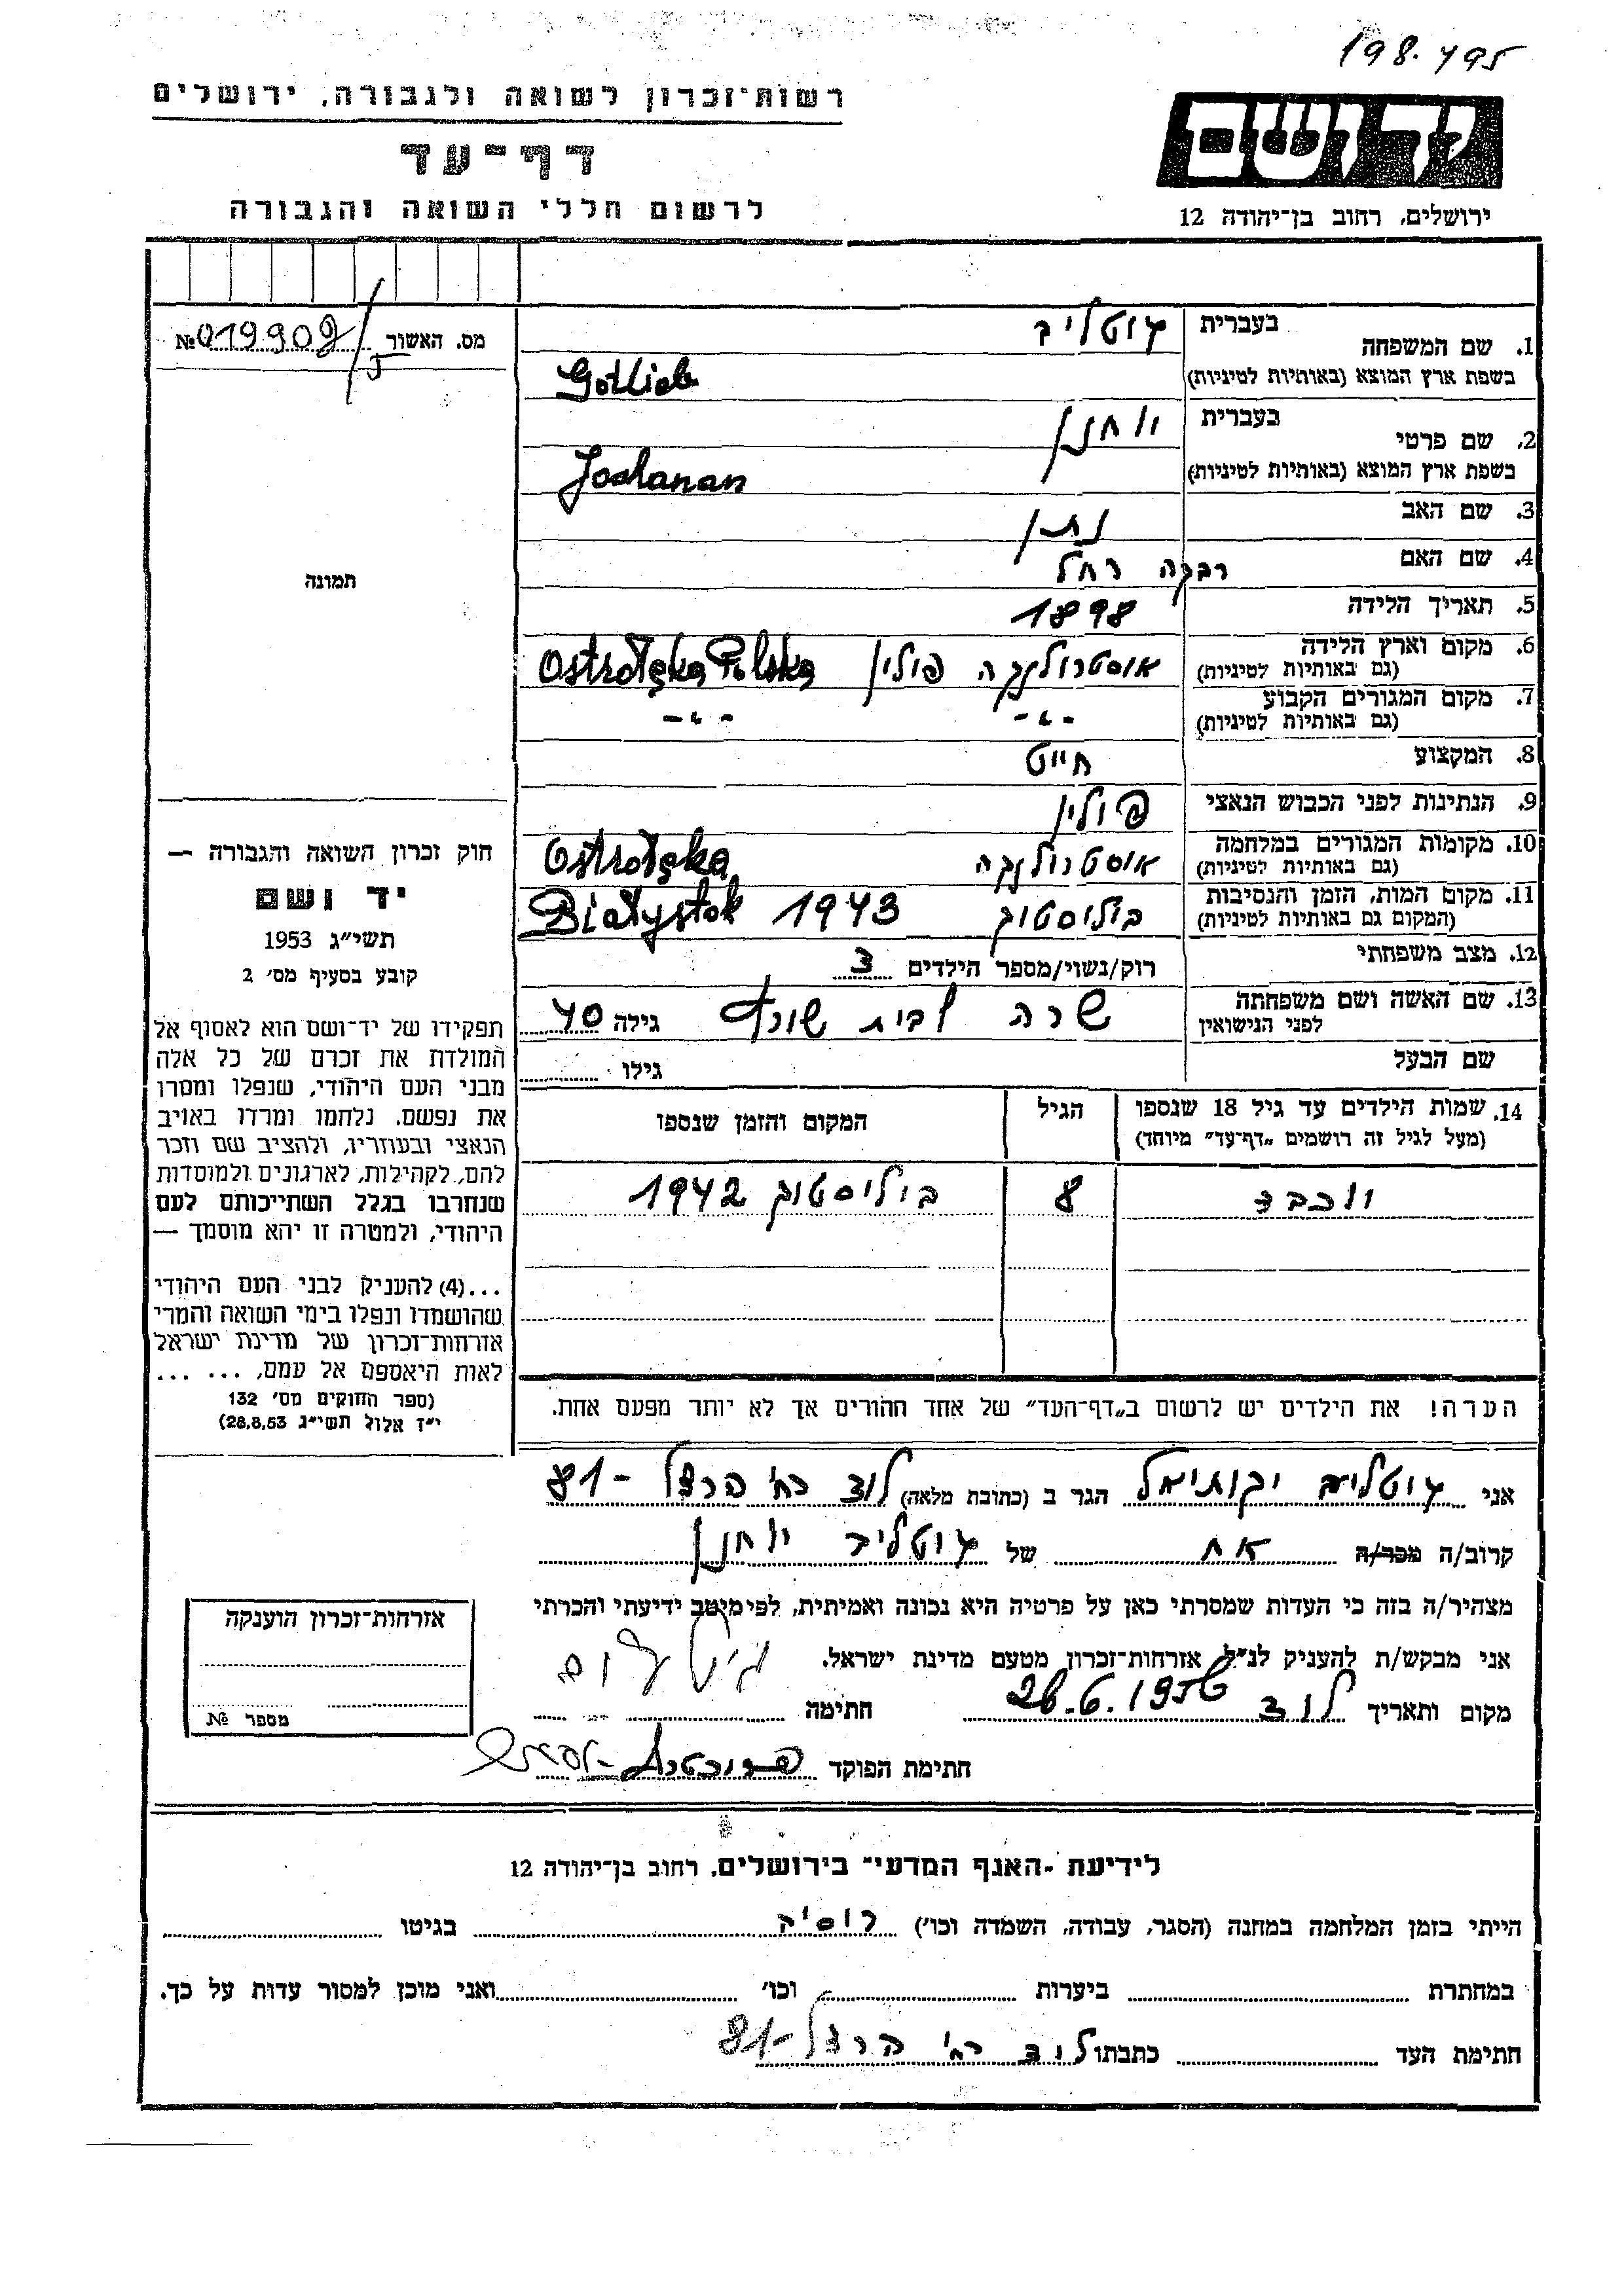 198.495
רשות־זכרון לשואה ולגבורה, ירושלים
דף־עד
לרשום חללי השואה והגבורה
יד ושם
ירושלים, רחוב בן־יהודה 12
מס. האשור 019902/5 №
תמונה
חוק זכרון השואה והגבורה —
יד ושם
תשי״ג 1953
קובע בסעיף מס׳ 2
תפקידו של יד־ושם הוא לאסוף אל
המולדת את זכרם של כל אלה
מבני העם היהודי, שנפלו ומסרו
את נפשם, נלחמו ומרדו באויב
הנאצי ובעוזריו, ולהציב שם וזכר
להם, לקהילות, לארגונים ולמוסדות
שנחרבו בגלל השתייכותם לעם
היהודי, ולמטרה זו יהא מוסמך —
...(4) להעניק לבני העם היהודי
שהושמדו ונפלו בימי השואה והמרי
אזרחות־זכרון של מדינת ישראל
לאות היאספם אל עמם, ... ...
(ספר החוקים מס׳ 132
י״ז אלול תשי״ג 28.8.53)
1. שם המשפחה בעברית גוטליב
בשפת ארץ המוצא (באותיות לטיניות) Gotlieb
2. שם פרטי בעברית יוחנן
בשפת ארץ המוצא (באותיות לטיניות) Jochanan
3. שם האב נתן
4. שם האם רבקה רחל
5. תאריך הלידה 1898
6. מקום וארץ הלידה (גם באותיות לטיניות) אוסטרולנקה פולין Ostrołęka Polska
7. מקום המגורים הקבוע (גם באותיות לטיניות) -״- -״-
8. המקצוע חייט
9. הנתינות לפני הכבוש הנאצי פולין
10. מקומות המגורים במלחמה (גם באותיות לטיניות) אוסטרולנקה Ostrołęka
11. מקום המות, הזמן והנסיבות (המקום גם באותיות לטיניות) ביליסטוק 1943 Białystok
12. מצב משפחתי רוק/נשוי/מספר הילדים 3
13. שם האשה ושם משפחתה לפני הנישואין שרה לבית גילה 40
שם הבעל גילו
14. שמות הילדים עד גיל 18 שנספו (מעל לגיל זה רושמים „דף־עד״ מיוחד) הגיל המקום והזמן שנספו
יוכבד 8 ביליסטוק 1942
הערה! את הילדים יש לרשום ב„דף־העד״ של אחד ההורים אך לא יותר מפעם אחת.
אני גוטליב יקותיאל הגר ב (כתובת מלאה) לוד רח׳ הרצל -81
קרוב/ה מכר/ה אח של גוטליב יוחנן
מצהיר/ה בזה כי העדות שמסרתי כאן על פרטיה היא נכונה ואמיתית, לפי מיטב ידיעתי והכרתי
אני מבקש/ת להעניק לנ״ל אזרחות־זכרון מטעם מדינת ישראל.
מקום ותאריך לוד 26.6.1956 חתימה
חתימת הפוקד
אזרחות־זכרון הוענקה
מספר №
לידיעת ־האגף המדעי״ בירושלים, רחוב בן־יהודה 12
הייתי בזמן המלחמה במחנה (הסגר, עבודה, השמדה וכו׳) רוסיה בגיטו
במחתרת ביערות וכו׳ ואני מוכן למסור עדות על כך.
חתימת העד כתבתו לוד רח׳ הרצל -81